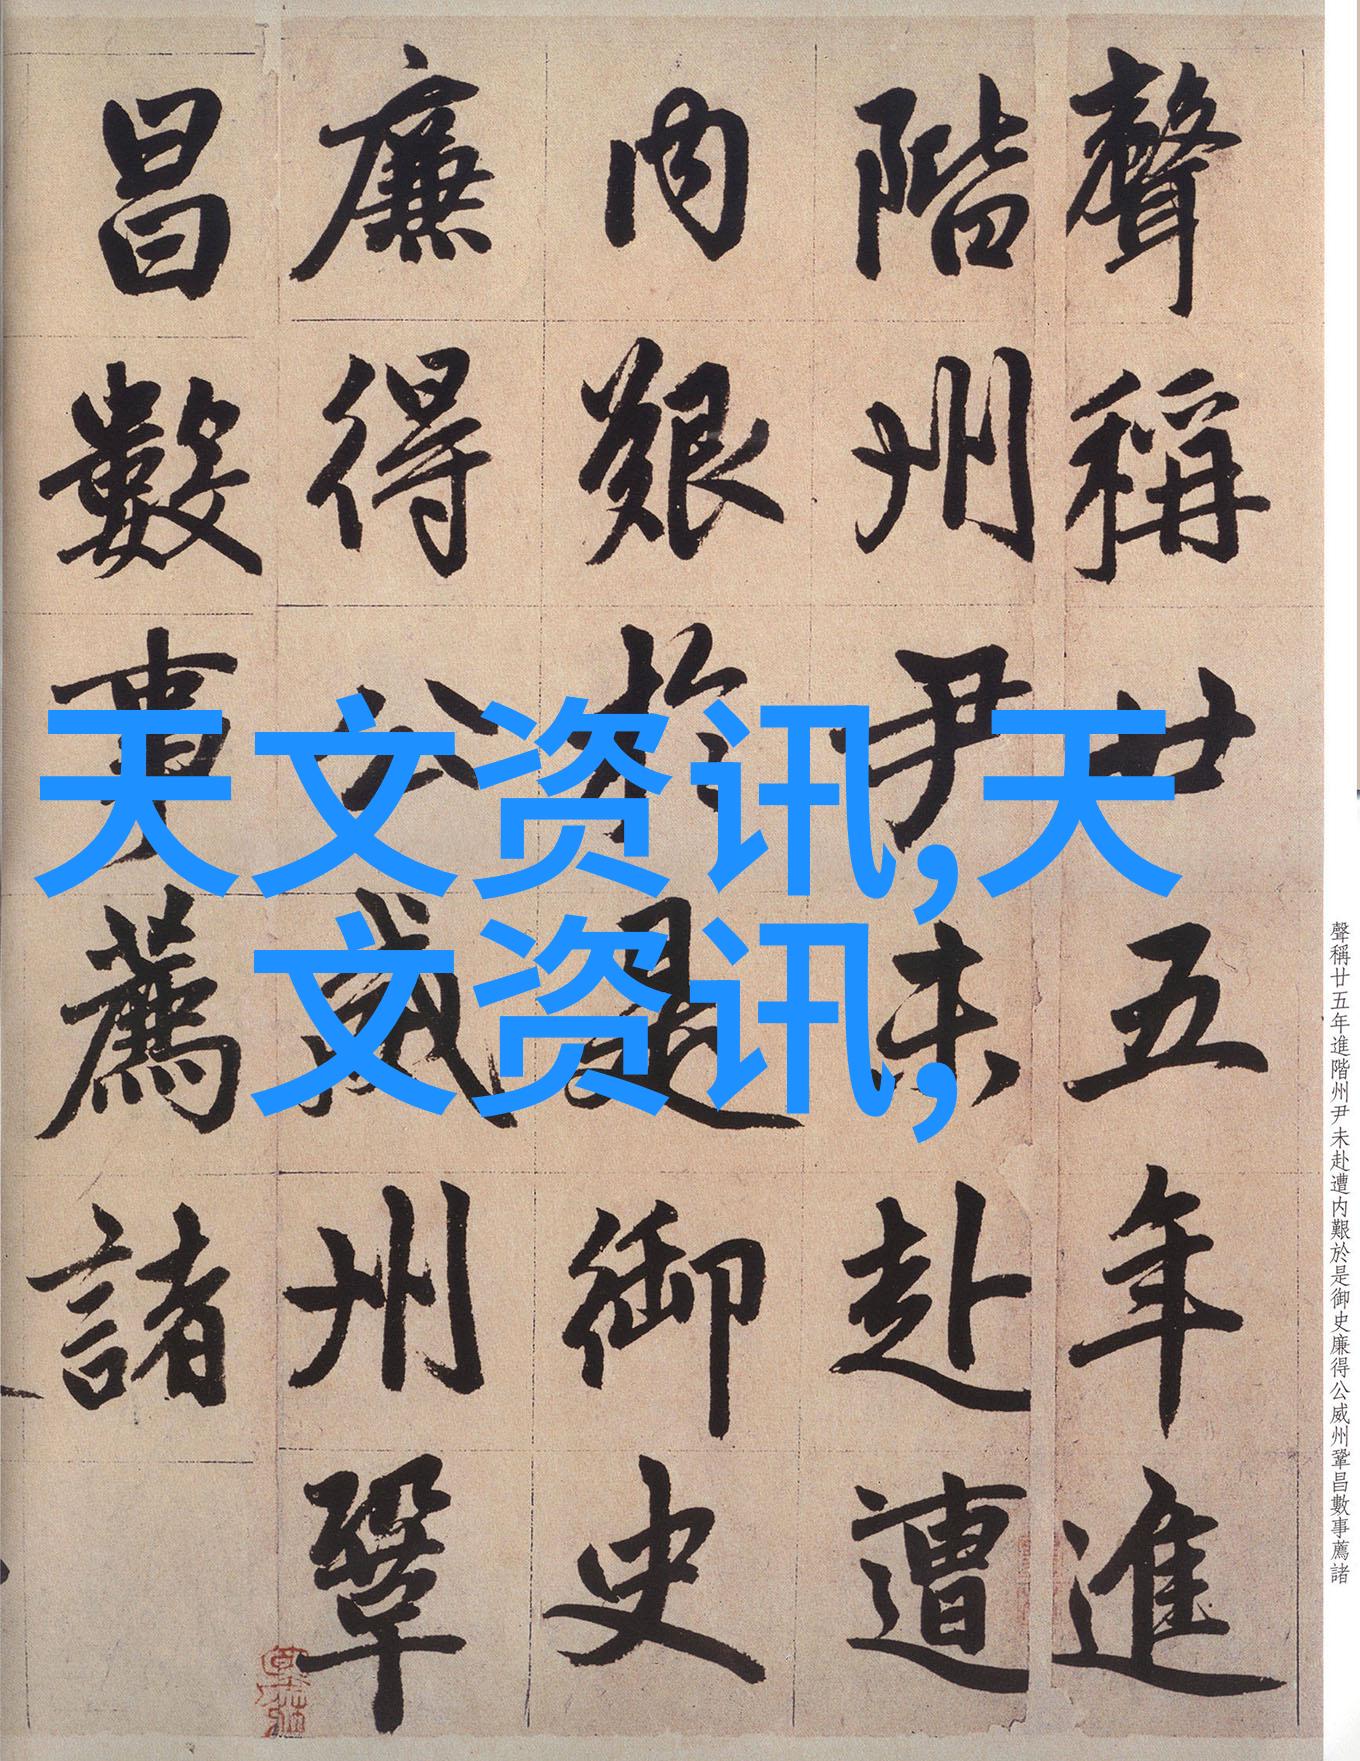 聲稱廿五年進
階州尹未赴遭
内艱於是御史
廉得公威州鞏
昌數事薦諸
天文资讯,天
文资讯,
聲稱廿五年進階州尹未赴遭内艱於是御史廉得公威州鞏昌數事薦諸